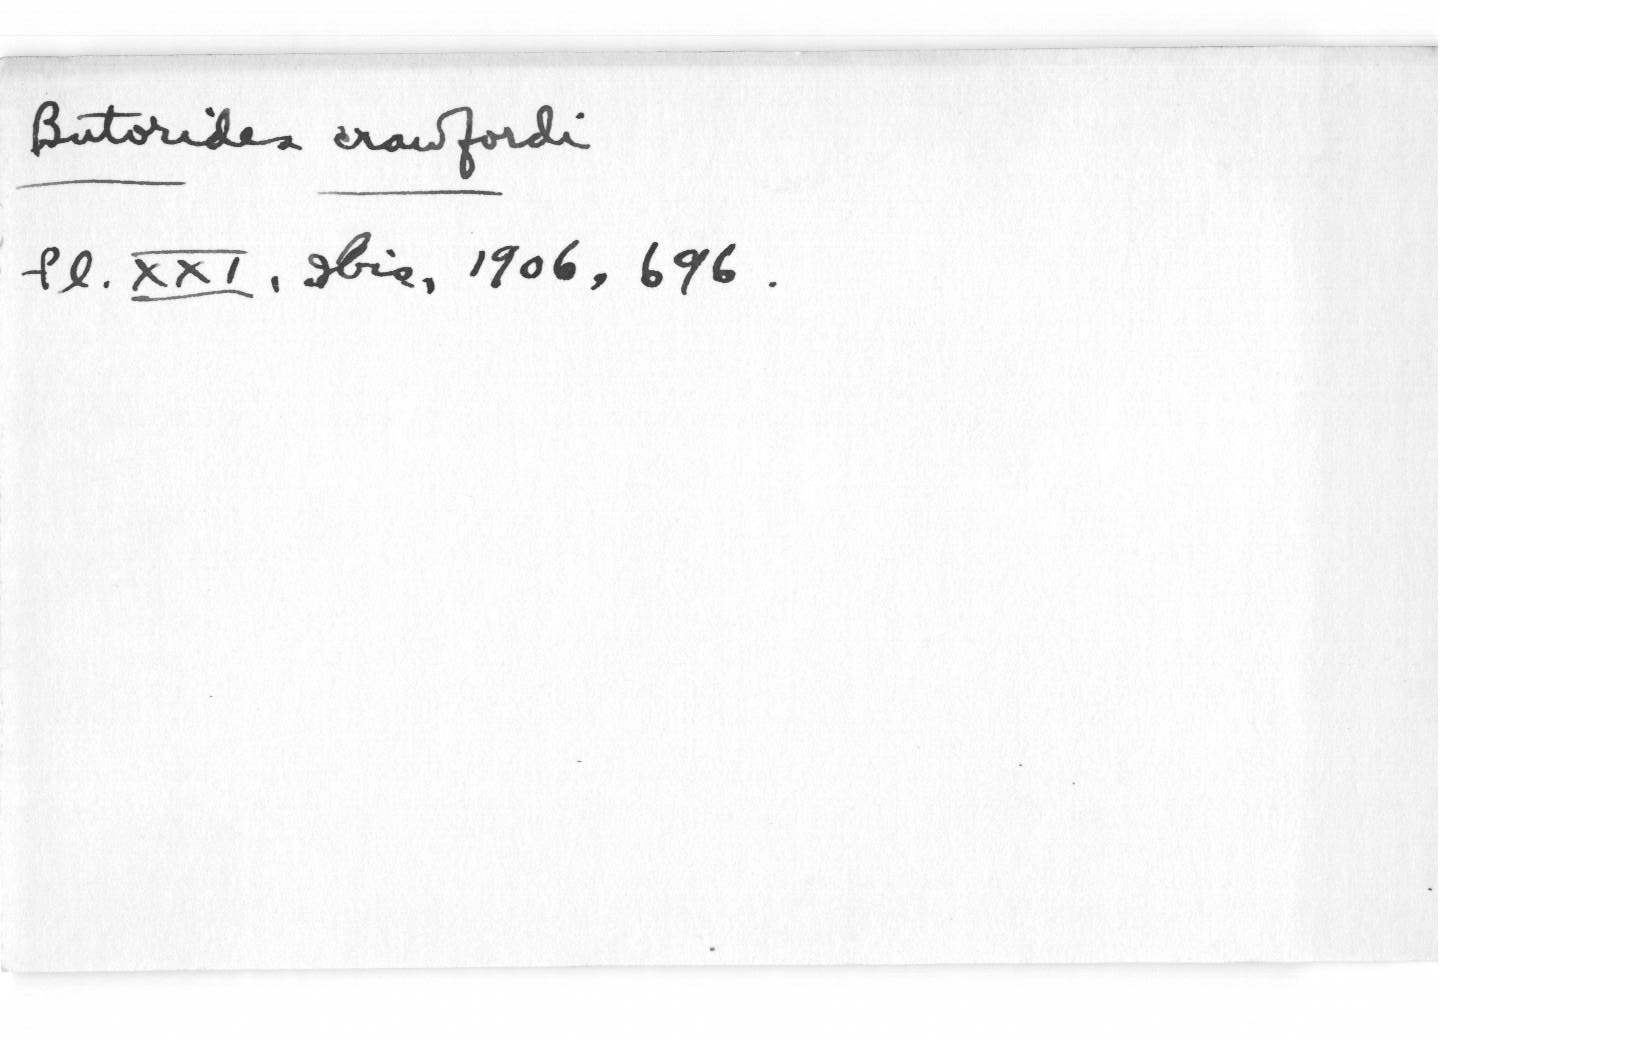 Butorides crawfordi
Pl. XXI, Ibis, 1906, 696.